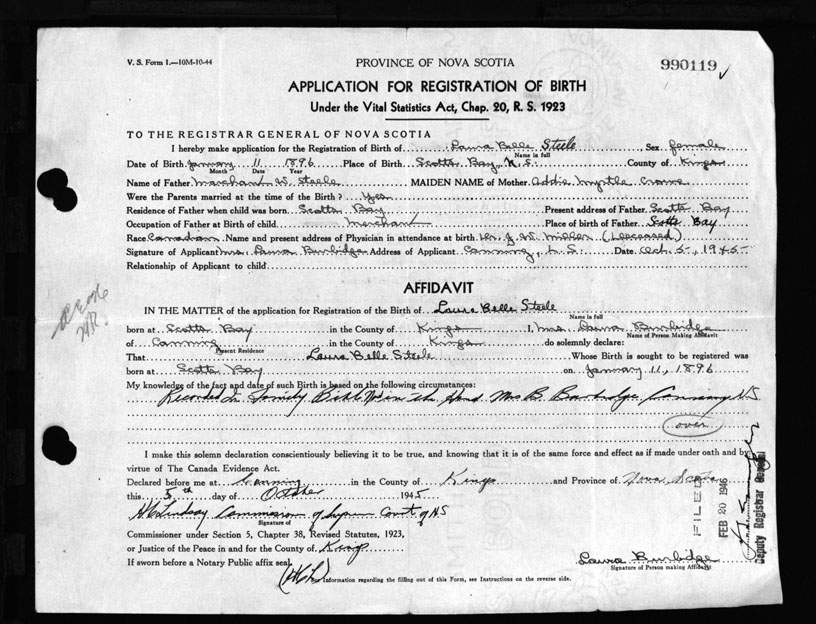 V. S. Form 1.—10M-10-44
PROVINCE OF NOVA SCOTIA
990119
APPLICATION FOR REGISTRATION OF BIRTH
Under the Vital Statistics Act, Chap. 20, R. S. 1923
TO THE REGISTRAR GENERAL OF NOVA SCOTIA
I hereby make application for the Registration of Birth of Laura Belle Steele Sex female
Name in full
Date of Birth January 11 1896 Place of Birth Scotts Bay, N.S. County of Kings
Month Date Year
Name of Father Marchant W. Steele MAIDEN NAME of Mother Addie Myrtle
Were the Parents married at the time of the Birth? Yes
Residence of Father when child was born Scotts Bay Present address of Father Scotts Bay
Occupation of Father at Birth of child Merchant Place of birth of Father Scotts Bay
Race Canadian Name and present address of Physician in attendance at birth Dr. J. W. Miller (Deceased)
Signature of Applicant Mrs. Laura Burbidge Address of Applicant Canning, N.S. Date Oct. 5, 1945
Relationship of Applicant to child
AFFIDAVIT
IN THE MATTER of the application for Registration of the Birth of Laura Belle Steele
Name in full
born at Scotts Bay in the County of Kings I, Mrs. Laura Burbidge
Name of Person Making Affidavit
of Canning in the County of Kings do solemnly declare:
Present Residence
That Laura Belle Steele Whose Birth is sought to be registered was
born at Scotts Bay on January 11, 1896
My knowledge of the fact and date of such Birth is based on the following circumstances:
Recorded in Family Bible Now in the Hand Mrs B. Burbidge Canning N.S
over
I make this solemn declaration conscientiously believing it to be true, and knowing that it is of the same force and effect as if made under oath and by
virtue of The Canada Evidence Act.
Declared before me at Canning in the County of Kings and Province of Nova Scotia
this 5th day of October 1945
Lindsay Commissioner of Supreme Court of NS
Signature of
Commissioner under Section 5, Chapter 38, Revised Statutes, 1923,
or Justice of the Peace in and for the County of Kings
If sworn before a Notary Public affix seal.
Laura Burbidge
Signature of Person making Affidavit
For Information regarding the filling out of this Form, see Instructions on the reverse side.
FILED
FEB 20 1946
Deputy Registrar General